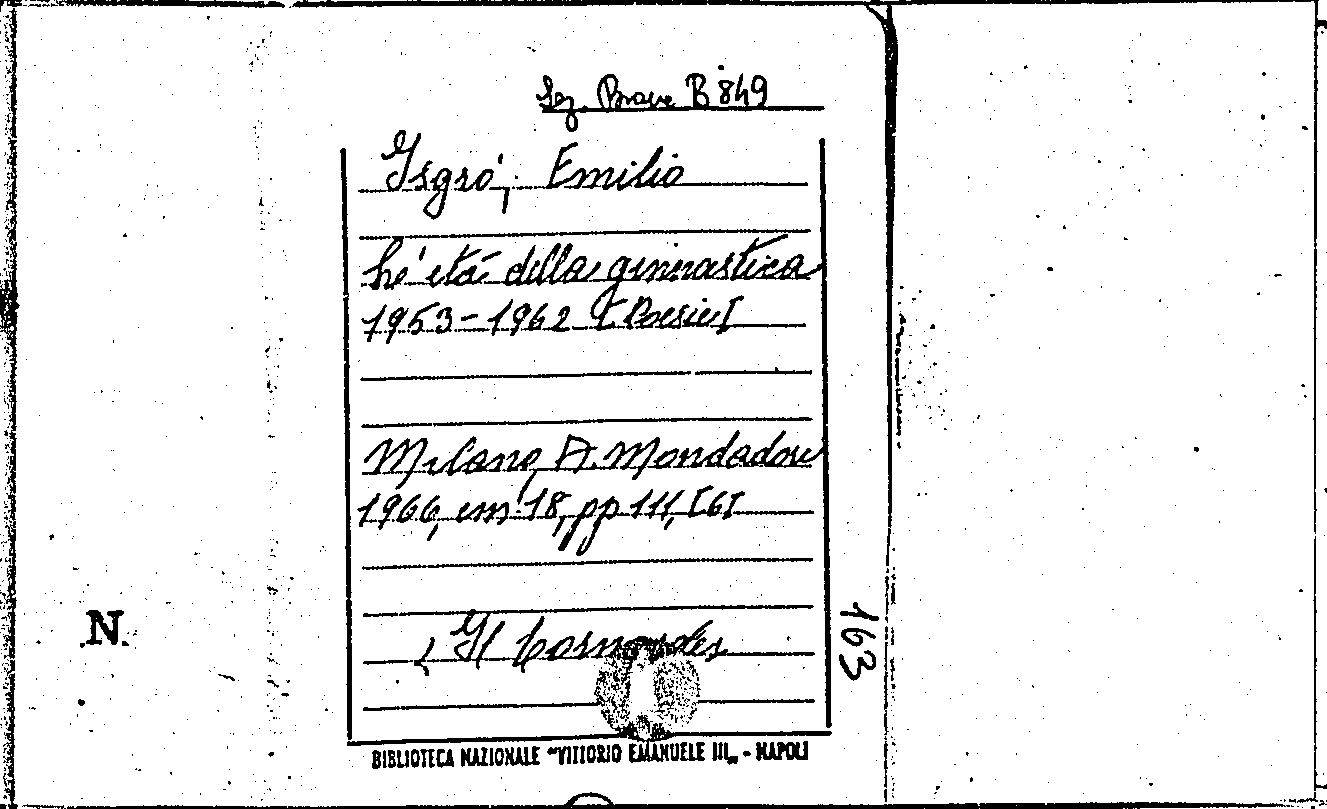 Sez. Brave B 849
Isgró, Emilio
L'etá della ginnastica
1953-1962 [Poesie]
Milano, A. Mondadori
1966, in 18, pp 111, [6]
(Il
163
N.
BIBLIOTECA NAZIONALE "VITTORIO EMANUELE III„ - NAPOLI